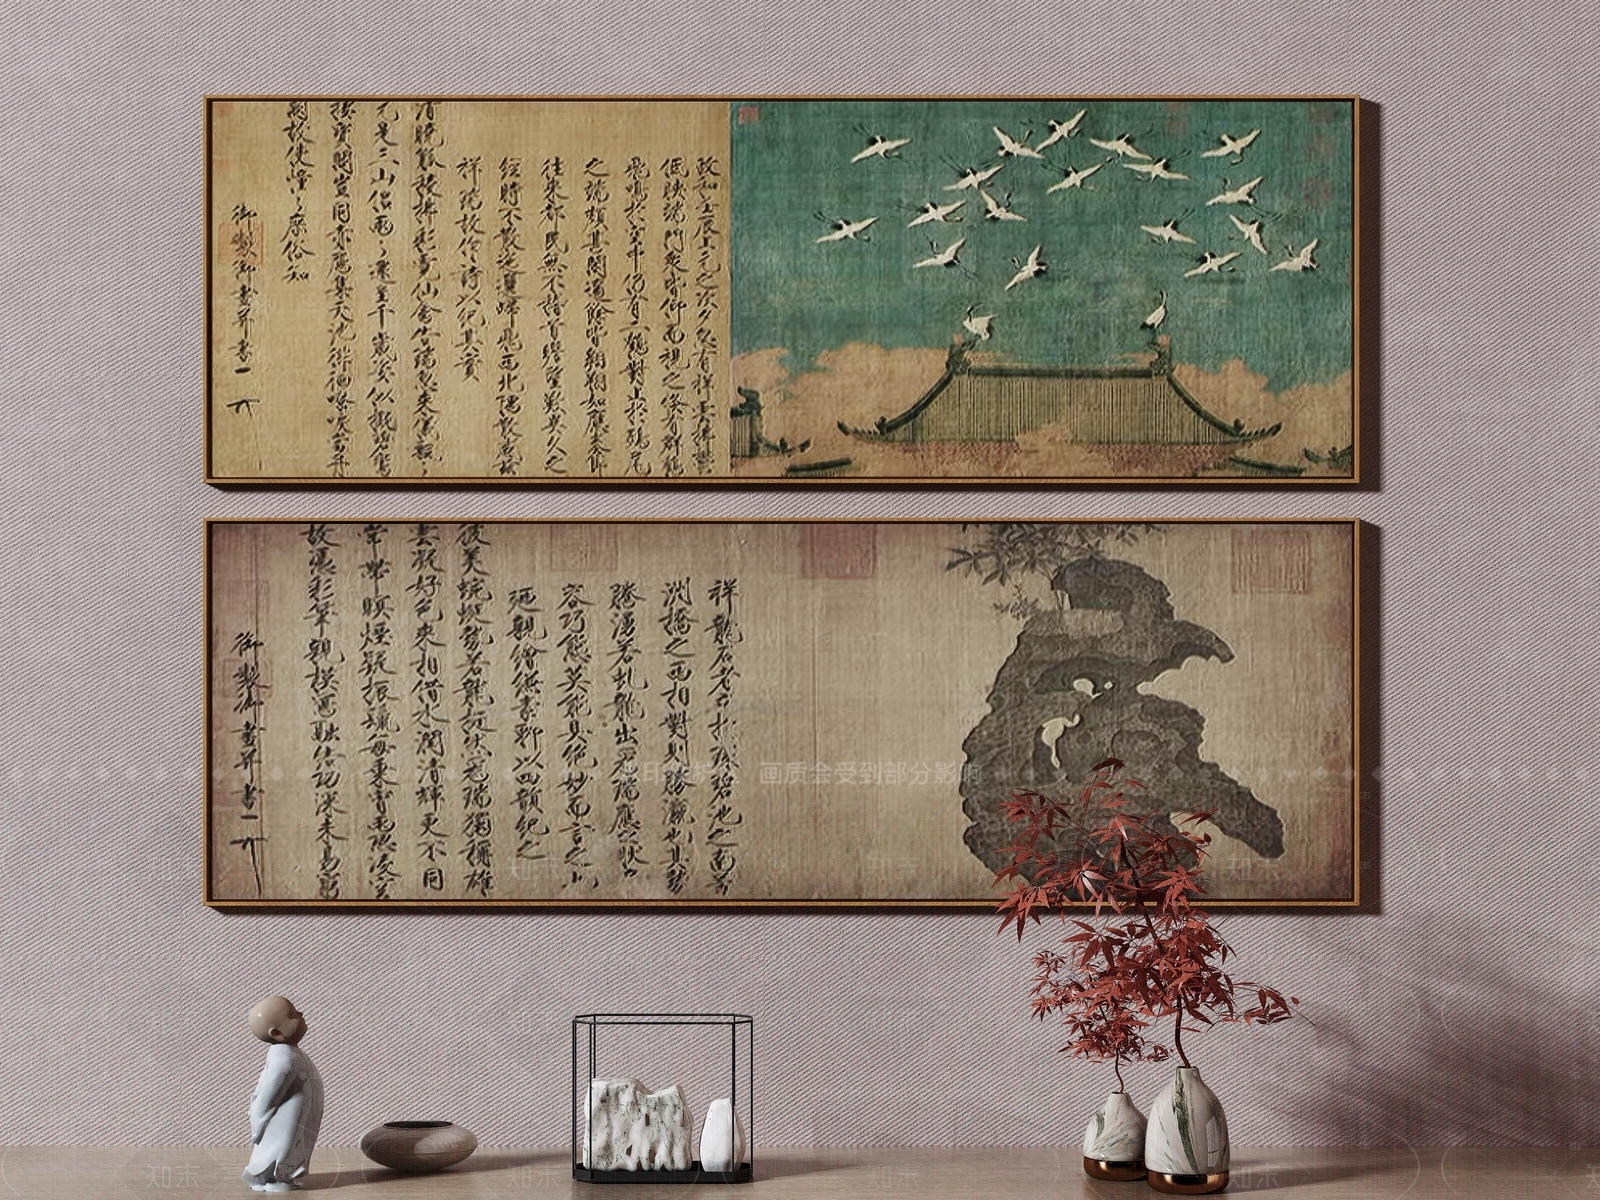 政和壬辰上元之次夕忽有祥雲拂鬱
低映端門衆皆仰而視之倏有群鶴
飛鳴於空中仍有二鶴對止於鴟尾
之端頗甚閒適餘皆翱翔如應奏節
往來都民無不稽首瞻望歎異久之
經時不散迤邐歸飛西北隅散感茲
祥瑞故作詩以紀其實
清曉觚稜拂彩霓仙禽告瑞忽來儀飄々
元是三山侶兩々還呈千歲姿似擬碧鸞
棲寶閣豈同赤雁集天池徘徊嘹唳當丹
闕故使憧々庶俗知
御製御畫并書
祥龍石者立於環碧池之南芳
洲橋之西相對則勝瀛也其勢
騰湧若虬龍出爲瑞應之狀奇
容巧態莫能具絕妙而言之也
廼親繪縑素聊以四韻紀之
彼美蜿蜒勢若龍挺然爲瑞獨稱雄
雲凝好色來相借水潤清輝更不同
常帶暝煙疑振鬣每乘宵雨恐凌空
故憑彩筆親模寫融結功深未易窮
御製御畫并書
画质会受到部分影响
知末